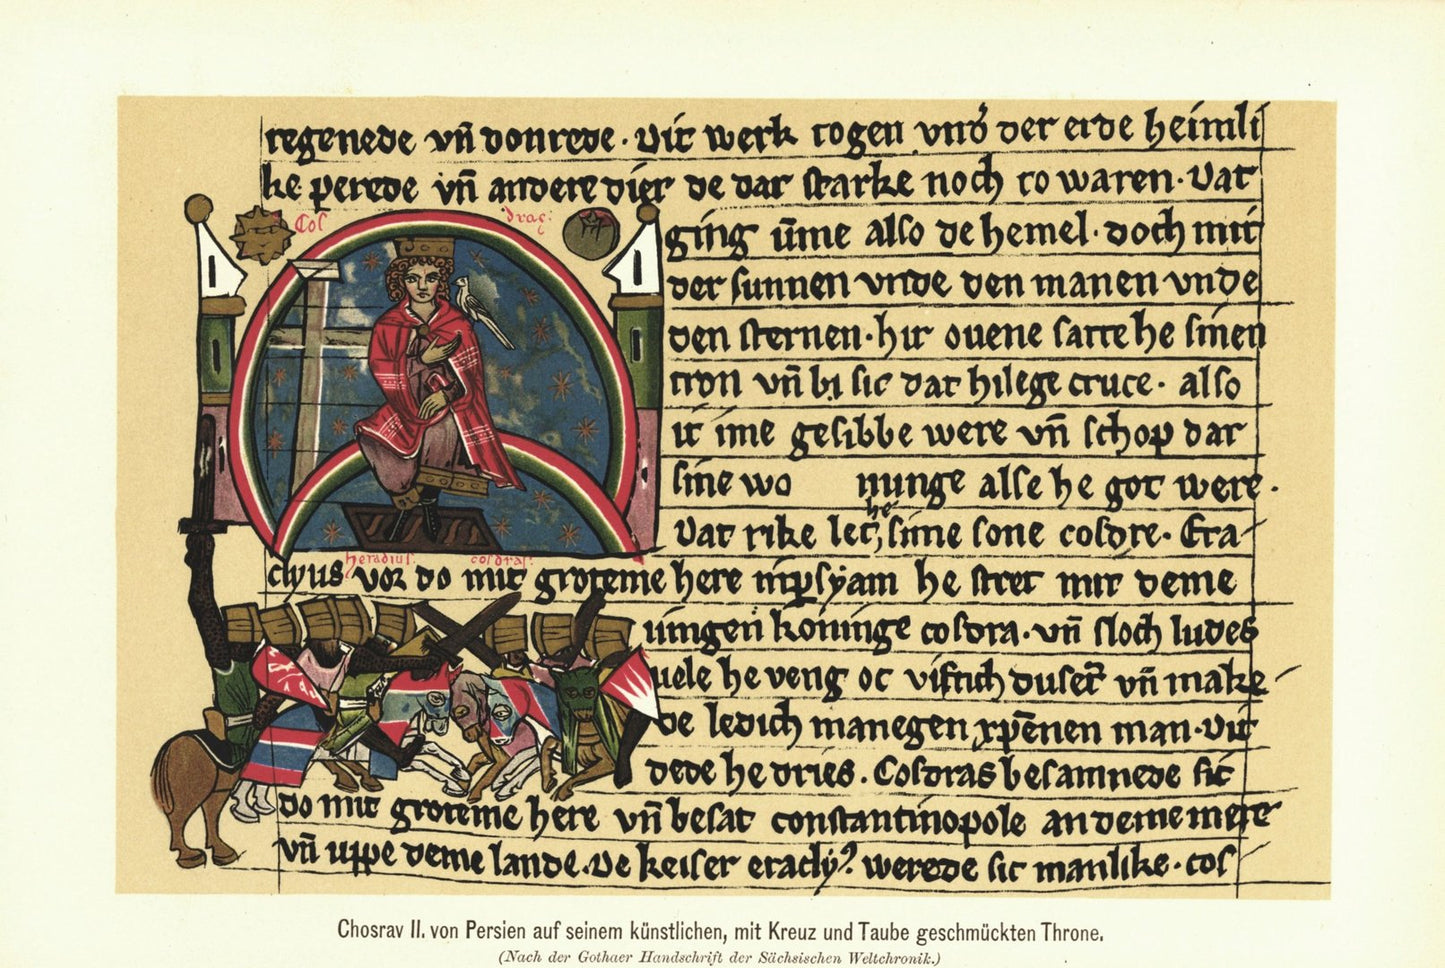 regenede vn̄ donrede · Dit werk togen vnd' der erde heimli
ke perede vn̄ andere dier de dar starke noch to waren · Dat
Cos drac:
ging ūme also de hemel · doch mit
der sunnen vnde den manen vnde
den sternen · hir ouene satte he sinen
tron vn̄ bi sic dat hilege cruce · also
it ime gesibbe were vn̄ schop dar
sine wo nunge alse he got were ·
Dat rike let he sime sone cosdre · Era
heraclius cosdras
clyus vor do mit groteme here in psyam he stret mit deme
iungen koninge cosdra · vn̄ sloch ludes
uele he veng oc viftich dusēt vn̄ make
de ledich manegen xpēnen man · Dit
dede he dries . Cosdras besamnede sic
do mit groteme here vn̄ besat constantinopole an deme mere
vn̄ uppe deme lande . De keiser eracly' werede sic manlike · cos
Chosrav II. von Persien auf seinem künstlichen, mit Kreuz und Taube geschmückten Throne.
(Nach der Gothaer Handschrift der Sächsischen Weltchronik.)